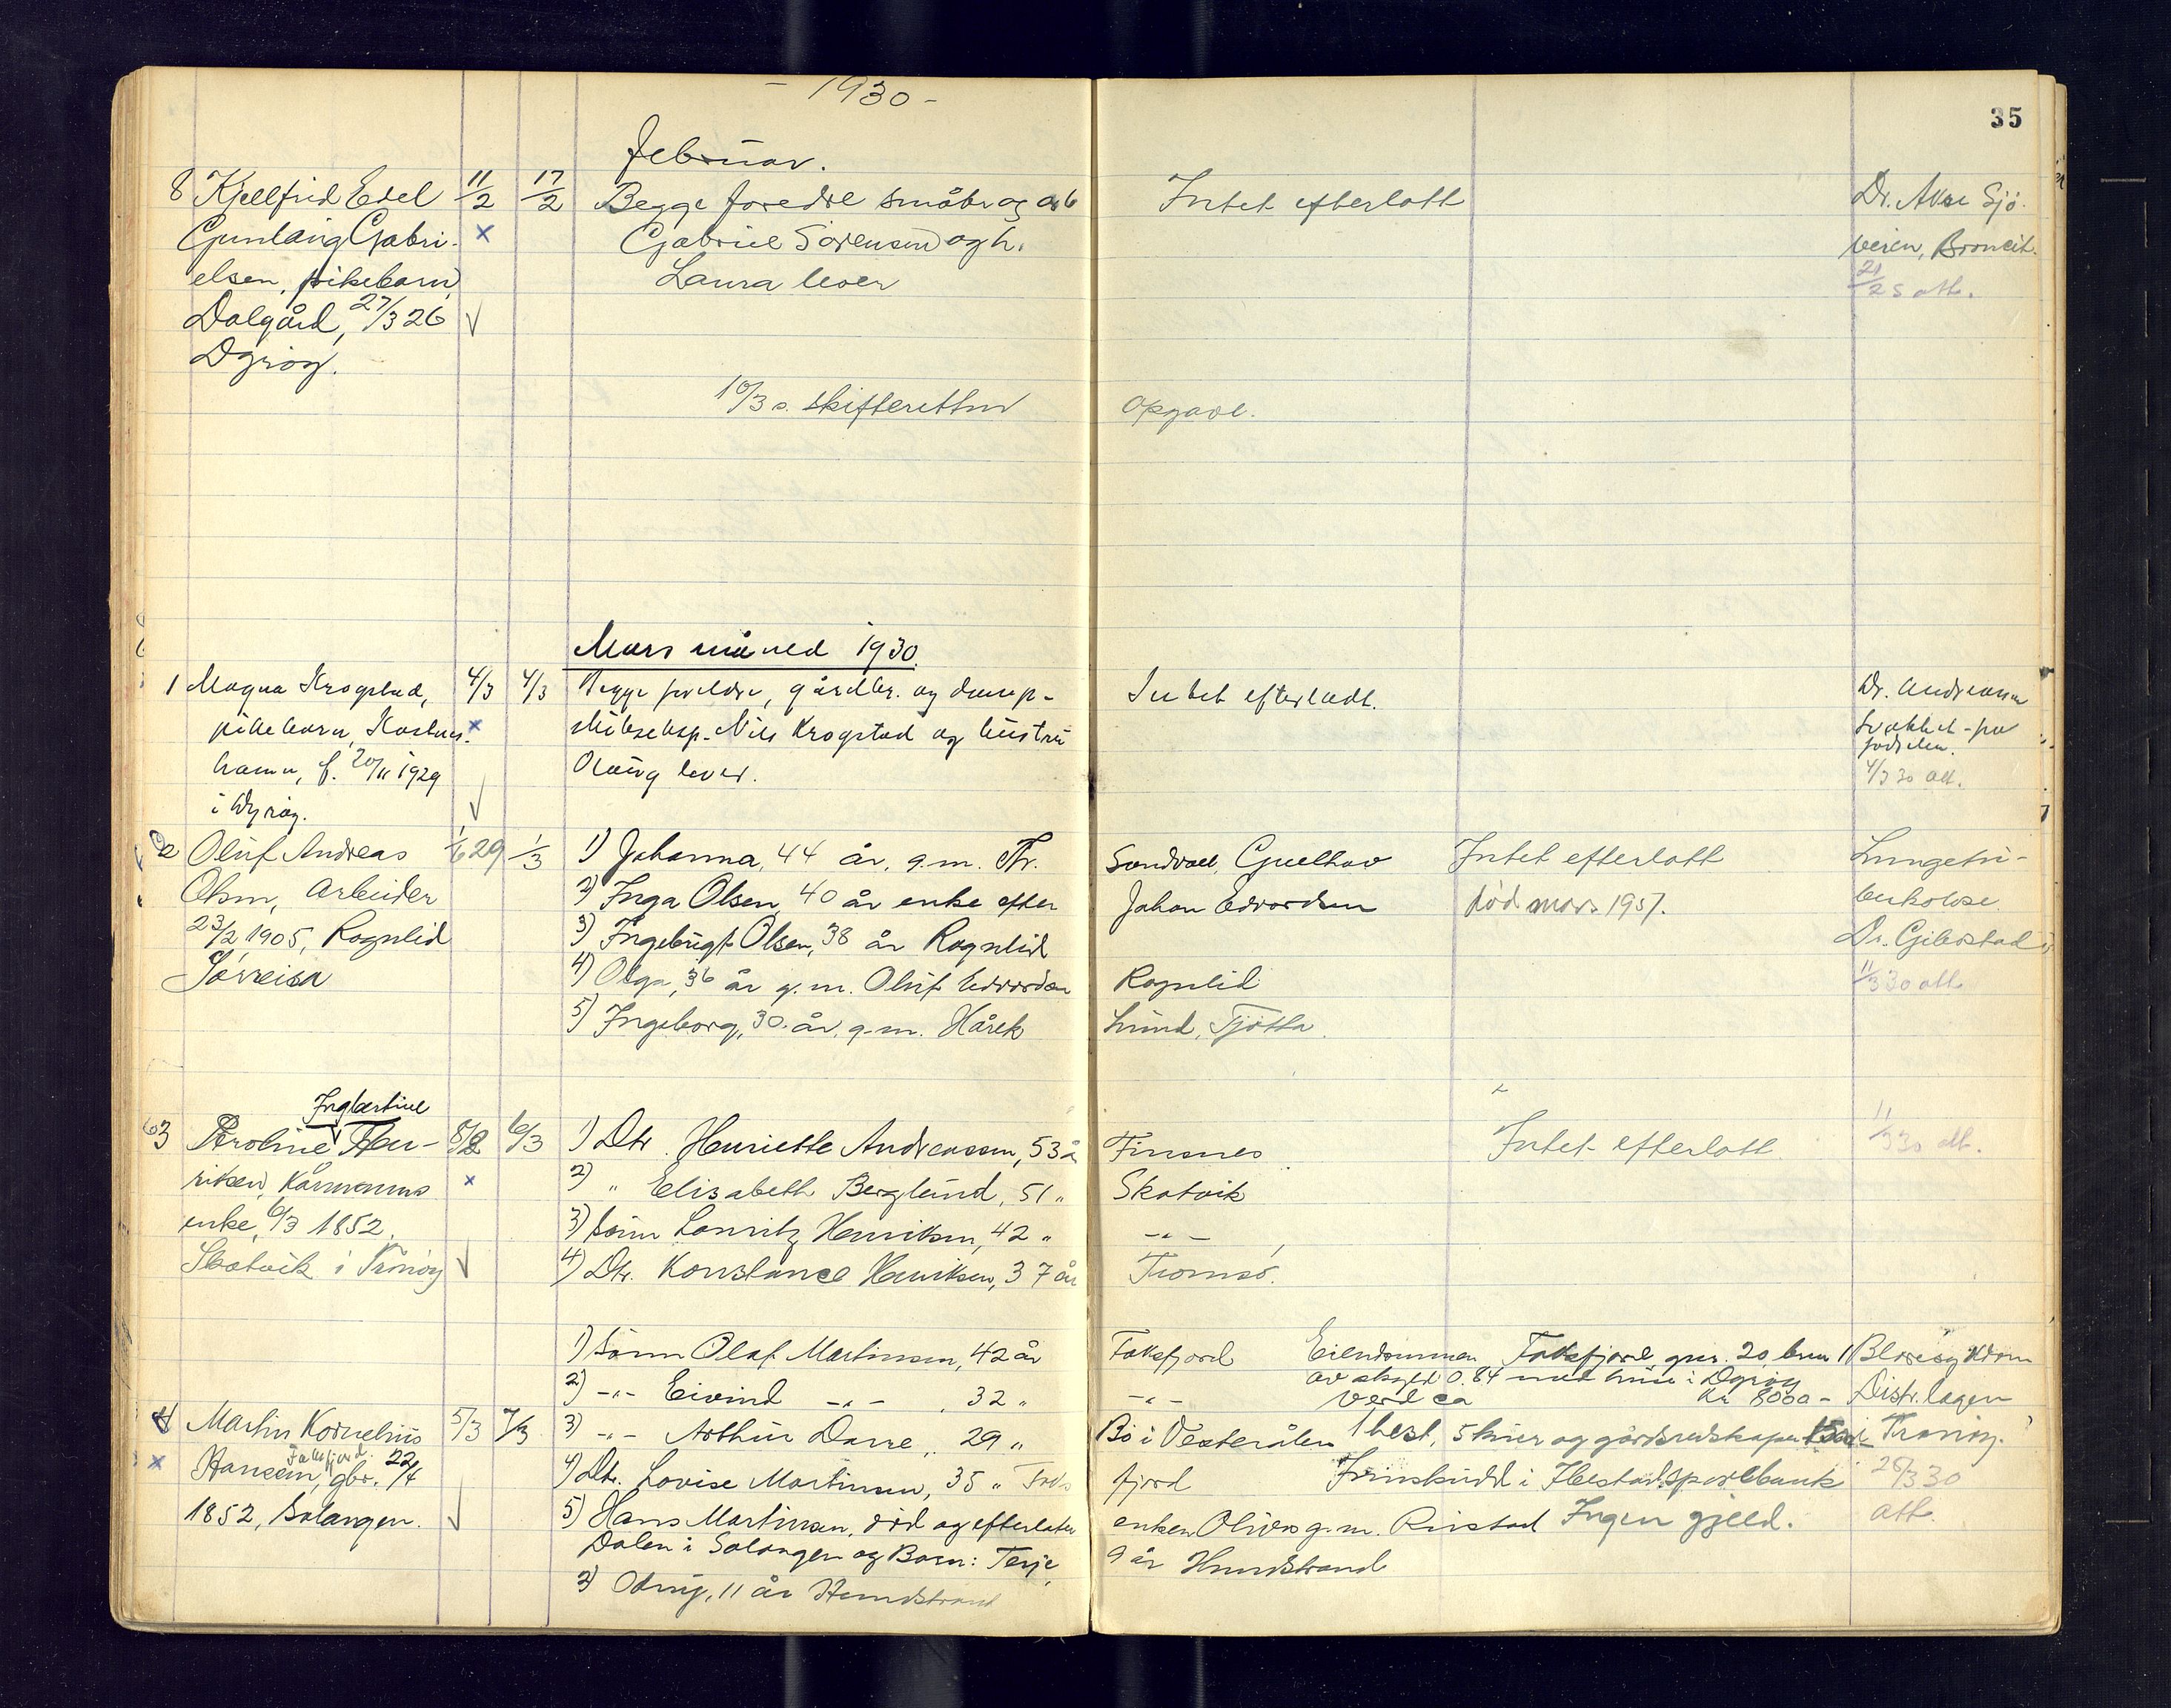 - 1930 -
35
Februar.
8 Kjellfrid Edel 11/2 17/2 Begge foredre småbr og arb Intet efterlatt Dr. Aune Sjö-
Gunlaug Gabri- x Gabriel Sörensen og h. veien, Broncit.
elsen, pikebarn Laura lever 21/2 s att.
Dalgård, 27/3 26 √
Dyröy.
10/3 s. skifteretten opgave.
Mars måned 1930.
1 Magna Krogstad, 4/3 4/3 Begge foreldre, gårdbr. og damp- Intet efterladt. Dr. Andreassen
pikebarn, Kastnes- x skibseksp. Nils Krogstad og hustru Svakhet fra
hamn, f. 20/11 1929 Olaug lever. födselen.
i Dyröy. √ 4/3 30 att.
2 Oluf Andreas 1/6 29 1/3 1) Johanna, 44 år, g.m. Th. Sandvall, Gjelhav Intet efterlatt Lungetu-
Olsen, arbeider 2) Inga Olsen, 40 år enke efter Johan Edvardsen död mars 1957. berkolose.
23/2 1905, Rognlid 3) Ingebrigt Olsen, 38 år Rognlid Dr. Gibostad
Sörreisa 4) Olga, 36 år g.m. Oluf Edvardsen Rognlid 11/3 30 att
5) Ingeborg, 30 år, g.m. Hårek Lund, Tjötta.
Ingbertine
3 Peroline Hen- 8/2 6/3 1) Dtr. Henriette Andreassen, 53 å Finsnes Intet efterlatt. 11/3 30 att.
riksen, kårmanns x 2) " Elisabeth Berglund, 51 " Skatvik
enke, 6/3 1852. 3) Sönn Lauritz Henriksen, 42 " - " -
Skatvik i Tranöy √ 4) Dtr. Konstance Henriksen, 37 år Tromsö.
1) Sönn Olaf Martinsen, 42 år Faksfjord Eiendommen Faksfjord, gnr. 20 bnr 1 Blæresykdom
2) -"- Eivind -"- , 32 " - " - av skyld 0.84 med huse i Dyröy
verd ca kr 8000 - Distr.lægen
4 Martin Kornelius 5/3 7/3 3) -"- Arthur Danre, 29 " Bö i Vesterålen 1 hest, 5 kuer og gårdsredskaper i Tranöy.
x Hansen, Faksfjord. gbr. 22/4 4) Dtr. Lovise Martinsen, 35 " Faks fjord Innskudd i Ibestad sparebank 28/3 30
1852, Salangen. √ 5) Hans Martinsen, död og efterlater enken Olivea g.m. Ristad Ingen gjeld. att.
Dalen i Salangen og Barn: Terje, 9 år Hundstrand
2) Odrug, 11 år Hundstrand